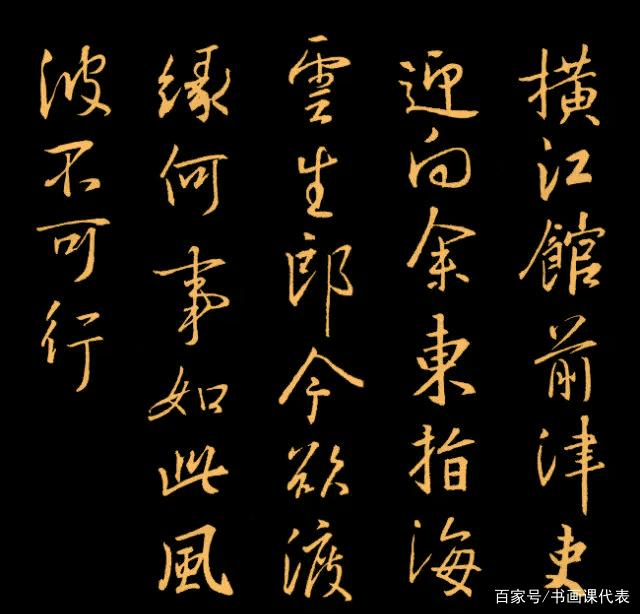 橫江館前津吏
迎向余東指海
雲生郎今欲渡
緣何事如此風
波不可行
百家号/书画课代表